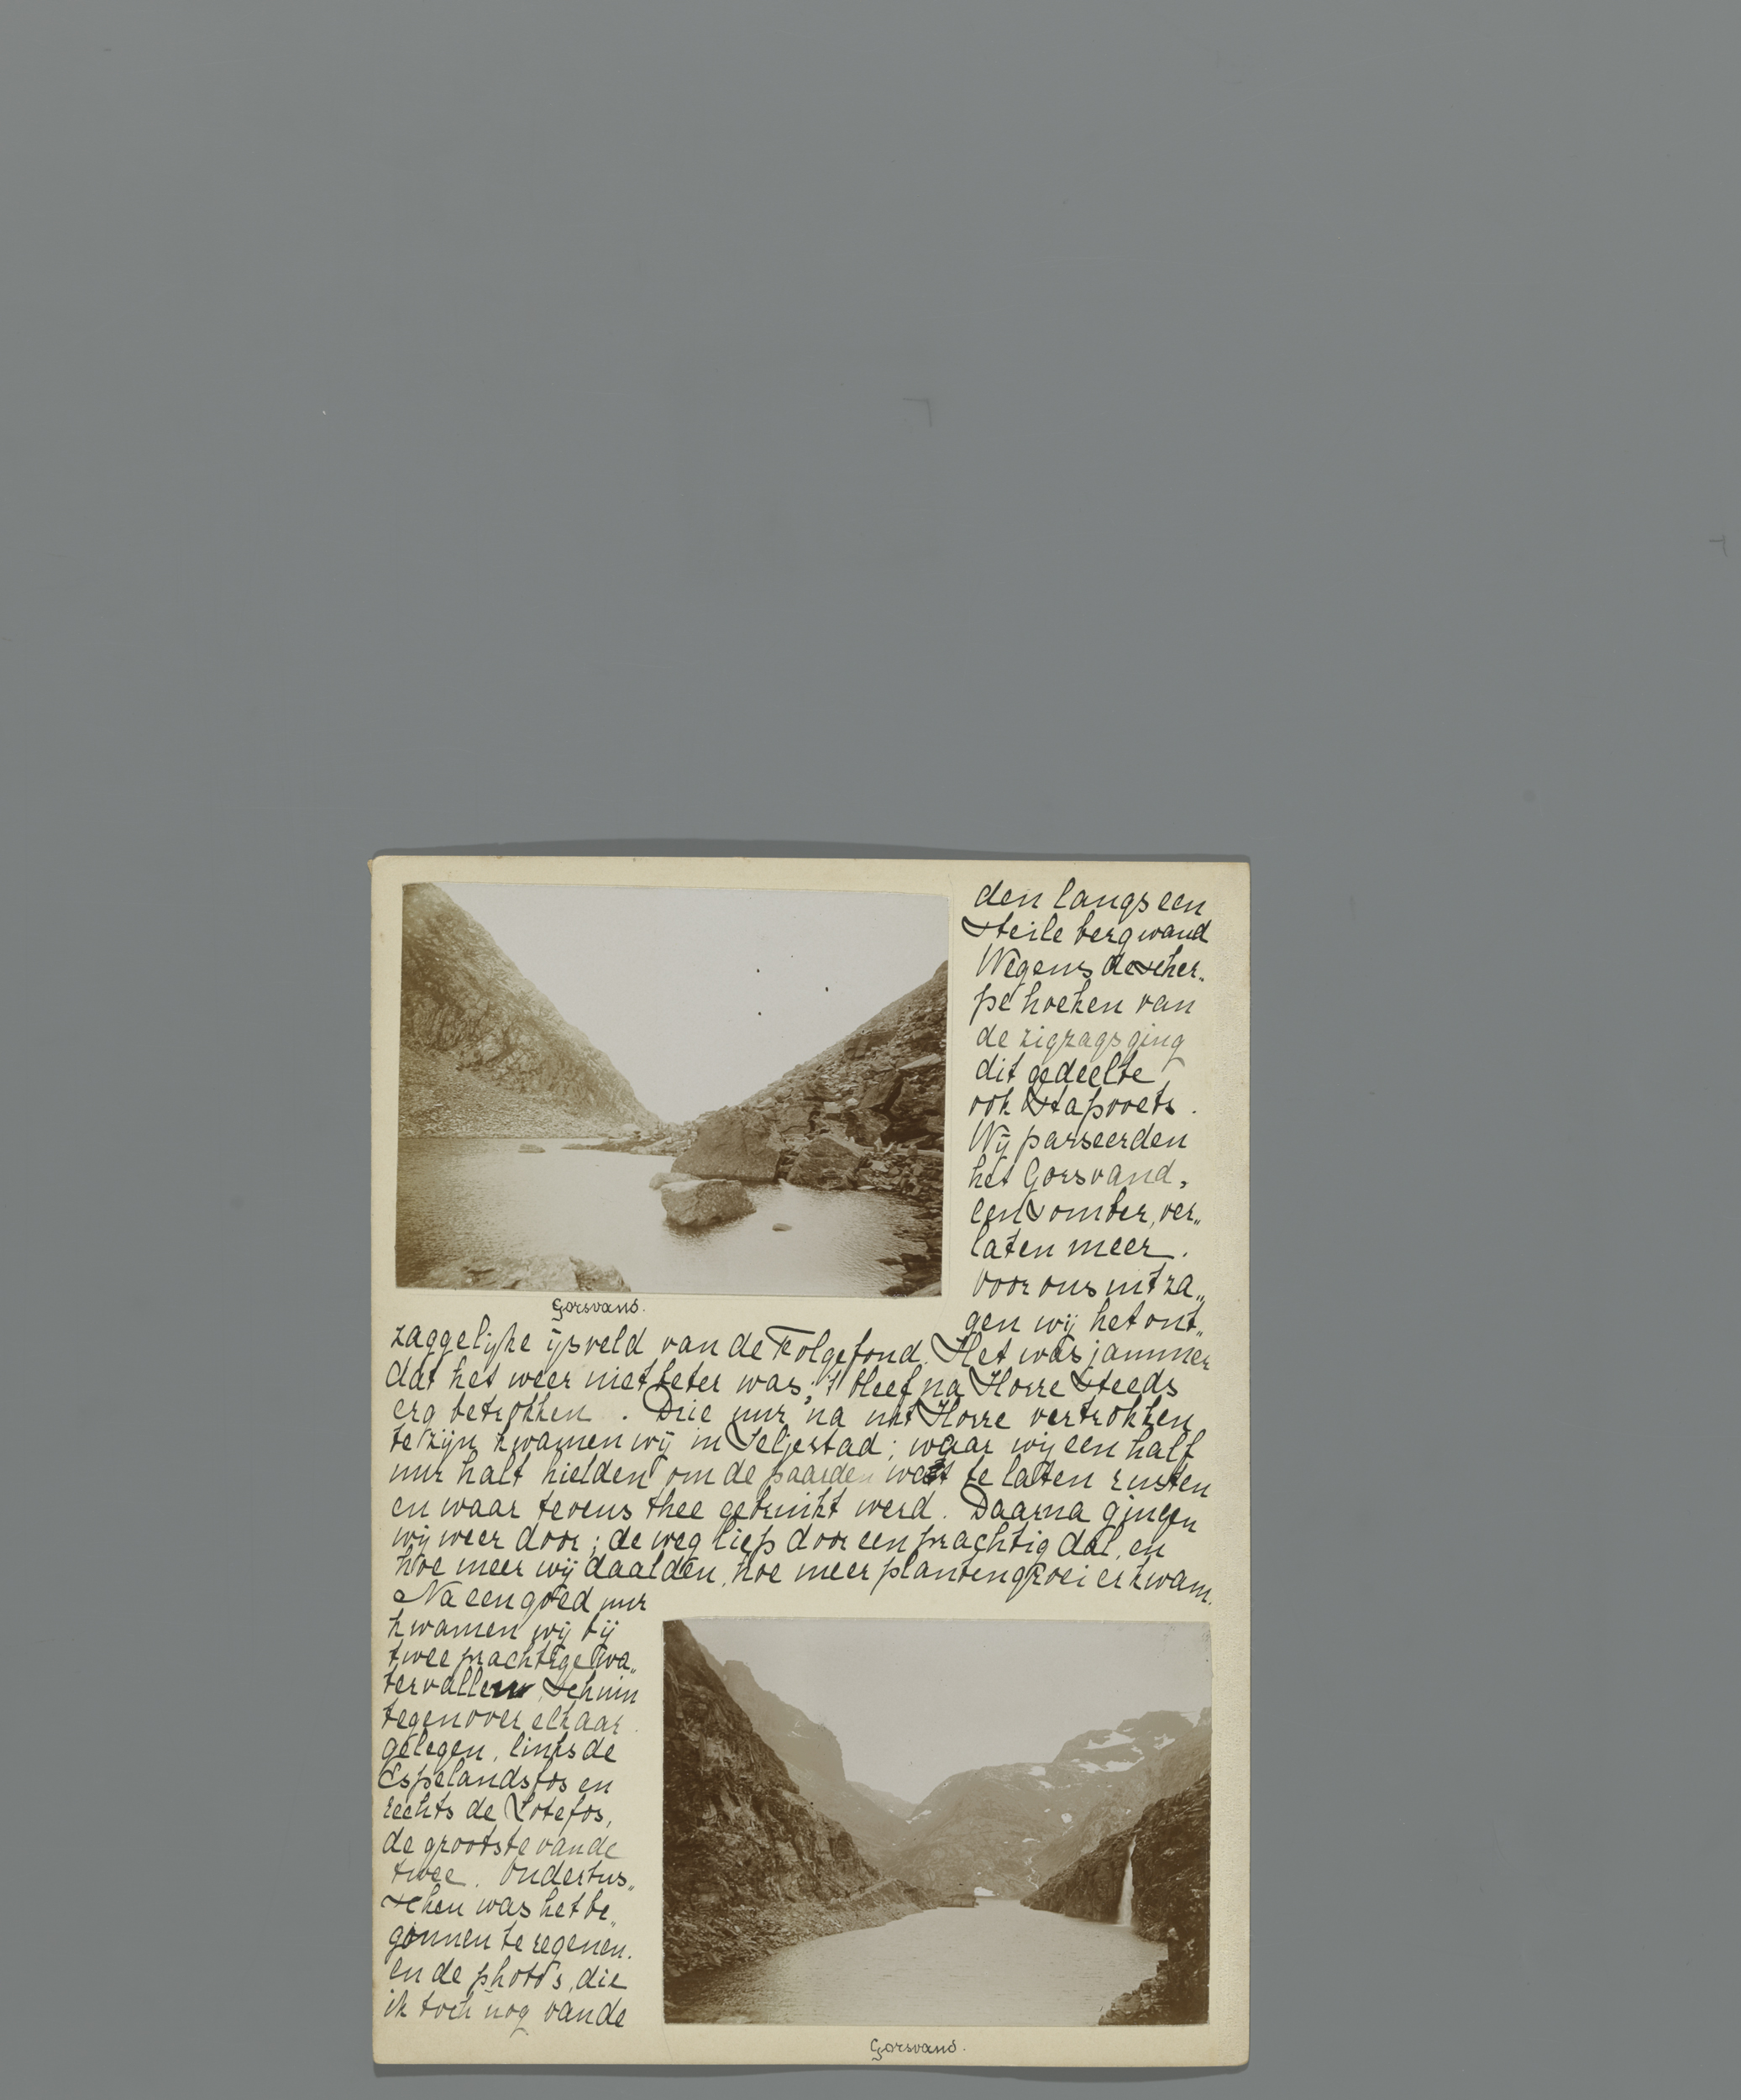 den langs een
steile bergwand
Wegens de scher„
pe hoeken van
de zigzags ging
dit gedeelte
ook stapvoets.
Wij passeerden
het Gorsvand,
een somber, ver„
laten meer.
Voor ons uit za„
gen wij het ont„
Gorsvand.
zaggelijke ijsveld van de Folgefond. Het was jammer
dat het weer niet beter was; 't bleef na Horre steeds
erg betrokken. Drie uur na uit Horre vertrokken
te zijn kwamen wij in Seljestad; waar wij een half
uur halt hielden om de paarden wat te laten rusten
en waar tevens thee gebruikt werd. Daarna gingen
wij weer door; de weg liep door een prachtig dal, en
hoe meer wij daalden, hoe meer plantengroei er kwam.
Na een goed uur
kwamen wij bij
twee prachtige wa„
tervallen, schuin
tegenover elkaar
gelegen, links de
Espelandsfos en
rechts de Lotefos,
de grootste van de
twee. Ondertus„
schen was het be„
gonnen te regenen.
en de photo's, die
ik toch nog van de
Gorsvand.